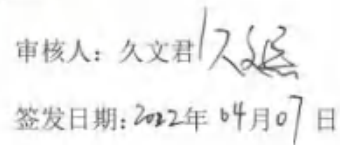 审核人：久文君
签发日期：2022年04月07日